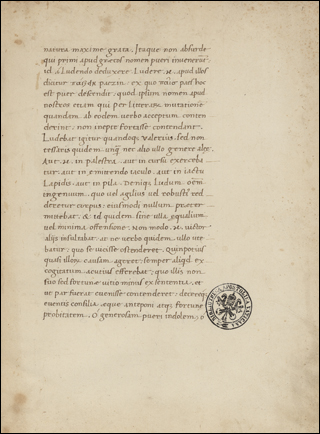 natura maxime grata. Itaque non absurde
qui primi apud grecos nomen pueri invenerunt
id a Ludendo deduxere. Ludere. n. apud illos
dicitur paizin. ex quo paizo pais hoc
est puer descendit. quod ipsum nomen apud
nostros etiam qui per litterarum mutatione
quandam ab eodem verbo acceptum conten
derint. non inepte fortasse contendant.
Ludebat igitur quandoqz Valerius. sed non
tesseris quidem unqz nec alio ullo genere alee
Aut. n. in palestra aut in cursu exerceba
tur. aut in emittendo iaculo. aut in iactu
Lapidis. aut in pila. Deniqz Ludum oem
ingenuum. quo vel agilius vel robusti red
deretur corpus. eiusmodi nullum preter
mittebat. & id quidem sine ulla equalium
vel minima offensione. Non modo. n. victor
aliis insultabat. at ne verbo quidem ullo ute
batur. quo se vicisse ostenderet. Quin potius
quasi illorum causam ageret semper aliqd ex
cogitatum acuius efferebat. quo illis non
suo sed fortune vitio minus ex sententia. et
ut par fuerat evenisse contenderet. decere qz
eventis consilia. eque anteponi atqz fortune
probitatem. O generosam pueri indolem. o